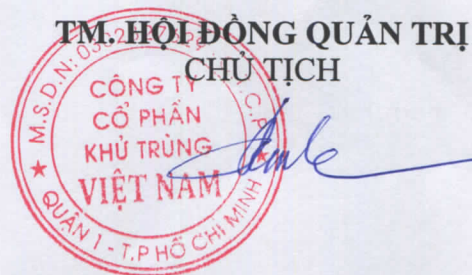 TM. HỘI ĐỒNG QUẢN TRỊ
CHỦ TỊCH
M.S.D.N:
C.P
CÔNG TY
CỔ PHẦN
KHỬ TRÙNG
VIỆT NAM
QUẬN 1 - T.P HỒ CHÍ MINH